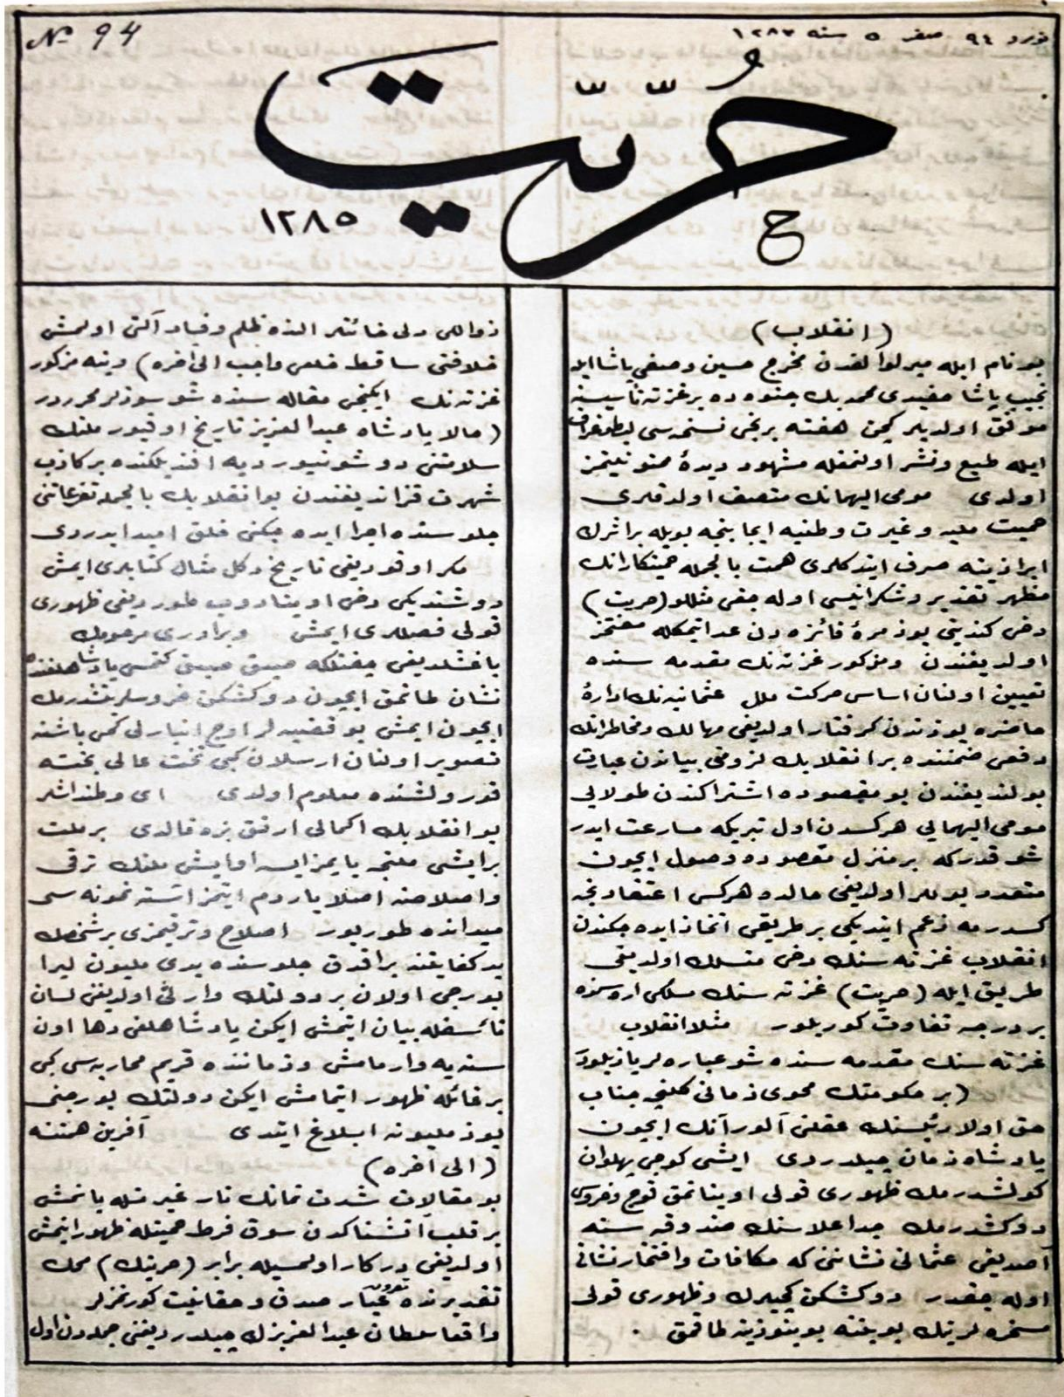 № 94
نومرو ٩٤ صفر ٥ سنه ١٢٨٧
حُرّیّت
١٢٨٥
ح
(انقلاب)
بو نام ایله میرلوالقدن مخرج حسین وصفی پاشا ایله
نجیب پاشا حفیدی محمد بك جنوه ده بر غزته تأسیسنه
موفق اولدیلر کچن هفته برنجی نسخه سی
ایله طبع ونشر اولنمغله مشهود دیدهٔ ممنونیتمز
اولدی مومی الیهمانك متصف اولدقلری
حمیت ملیه وغیرت وطنیه ایجابنجه بویله بر اثرك
ابرازینه صرف ایتدکلری همت بالجمله حمیتکارانك
مظهر تقدیر وشکرانیسی اوله جغی مثللو (حریت)
دخی کندینی بو زمرهٔ فائزه دن عد ایتمکله مفتخر
اولدیغندن ومذکور غزته نك مقدمه سنده
تعیین اولنان اساسی حرکت ملل عثمانیه نك ادارهٔ
حاضره یوزندن گرفتار اولدیغی مهالك ومخاطراتك
دفعی ضمننده بر انقلابك لزومنی بیاندن عبارت
بولندیغندن بو مقصوده اشتراکندن طولایی
مومی الیهمایی هرکسدن اول تبریکه مسارعت ایدر
شو قدرکه بر منزل مقصوده وصول ایچون
متعدد یوللر اولدیغی حالده هرکس اعتقادنجه
کسدرمه زعم ایتدیکی بر طریقی اتخاذ ایده جکندن
انقلاب غزته سنك دخی متسلك اولدیغی
طریق ایله (حریت) غزته سنك مسلکی اره سنده
بر درجه تفاوت کوریلور مثلا انقلاب
غزته سنك مقدمه سنده شو عباره لر یازیلیور
(بر حکومتك محوی زمانی کلنجه جناب
حق اولا رئیسنك عقلنی آلور آنك ایچون
پادشاه زمان چیلدردی ایشی کوجی پهلوان
کولشدرمك ظهوری قولی اویناتمق قوچ وخروس
دوکشدرمك جد اعلاسنك صندوقه سنه
آصدیغی عثمانی نشاننی که مکافات وافتخار نشانی
اوله جقدر دوکشکن کچیلرك وظهوری قولی
مسخره لرینك بویننه بوینوزینه طاقمق .
ذواللی دلی خائنلر النده ظلم وفساد آلتی اولمش
خلافتی ساقط خلعی واجب الی اخره) وینه مذکور
غزته نك ایکنجی مقاله سنده شو سوزلر محرردر
(حالا پادشاه عبد العزیز تاریخ اوقیور ملتك
سلامتنی دوشونیور دیه افندیلکنده بر کاذب
شهرت قزاندیغندن بو انقلابك بالجمله تفرعاتنی
جلوسنده اجرا ایده جکنی خلق امید ایدردی
مکر اوقودیغی تاریخ دکل مثال کتابلری ایمش
دوشندیکی دخی اوینادوب طوردیغی ظهوری
قولی فصللری ایمش وبرادری مرحومك
باغشلدیغی چفتلکه صیق صیق کتمسی پادشاهلغنده
نشان طاقمق ایچون دوکشکن خروسلر یتشدرمك
ایچون ایمش بو قضیه لر اوچ انبارلی کمی باشنه
تصویر اولنان ارسلان کبی تخت عالی بخته
قورولشنده معلوم اولدی ای وطنداشلر
بو انقلابك اکمالی ارتق بزه قالدی بر ملت
بر ایشی ملتجه یاپمزایسه اوایش ملتك ترقی
واصلاحنه اصلا یاردم ایتمز اشته نمونه سی
میدانده طوریور اصلاح وترقیمزی بر شخصك
ید کفایتنه براقدق جلوسنده یدی ملیون لیرا
بورجی اولان بر دولتك وارثی اولدیغنی لسان
تأسفله بیان ایتمش ایکن پادشاهلغی دها اون
سنه یه وارمامش وزماننده قریم محاربه سی کبی
بر غائله ظهور ایتمامش ایکن دولتك بورجنی
یوز ملیونه ابلاغ ایتدی آفرین همتنه
(الی آخره)
بو مقالات شدت تمامك نار غیرتله یانمش
بر قلب آتشناکدن سوق فرط حمیتله ظهور ایتمش
اولدیغی درکار اولمسیله برابر (حریتك) محك
تقدیرنده تمامی عیار صدق وحقانیت کورنمزلر
واقعا سلطان عبد العزیزك چیلدردیغنی جمله دن اول